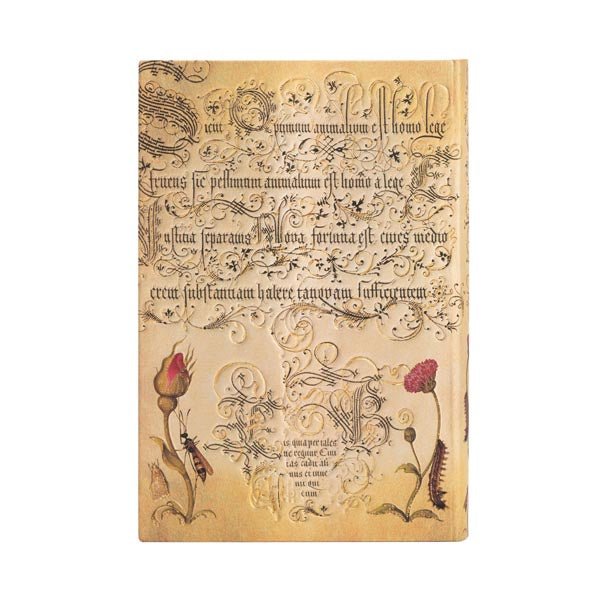 Sicut Optimum animalium est homo lege
fruens sic pessimum animalium est homo a lege Et
Iustitia separatus Nova fortuna est cives medio
crem substantiam habere tanquam sufficientem
Eis quia per tales
ne regitur Ciui
tas cadit ali